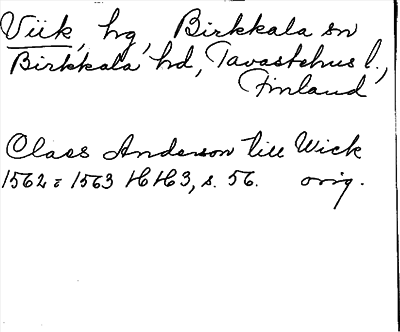 Viik, hg, Birkkala sn
Birkkala hd, Tavastehus l.,
Finland
Claes Anderson till Wick
1562 = 1563 HH3, s. 56. orig.